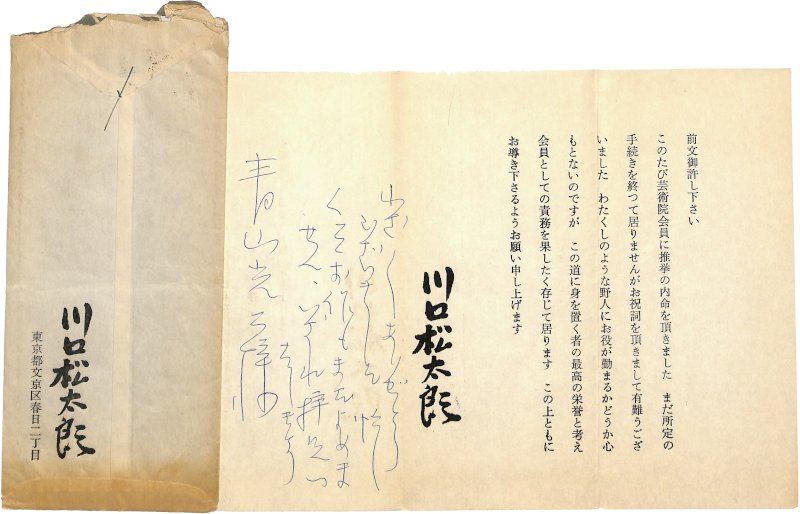 前文御許し下さい
このたび芸術院会員に推挙の内命を頂きました　まだ所定の
手続きを終つて居りませんがお祝詞を頂きまして有難うござ
いました　わたくしのような野人にお役が勤まるかどうか心
もとないのですが　この道に身を置く者の最高の栄誉と考え
会員としての責務を果したく存じて居ります　この上ともに
お導き下さるようお願い申し上げます
川口松太郎
ありがとう
お作もまだよめま
せん、いづれ拝見い
青山光二様
川口松太郎
東京都文京区春日二丁目